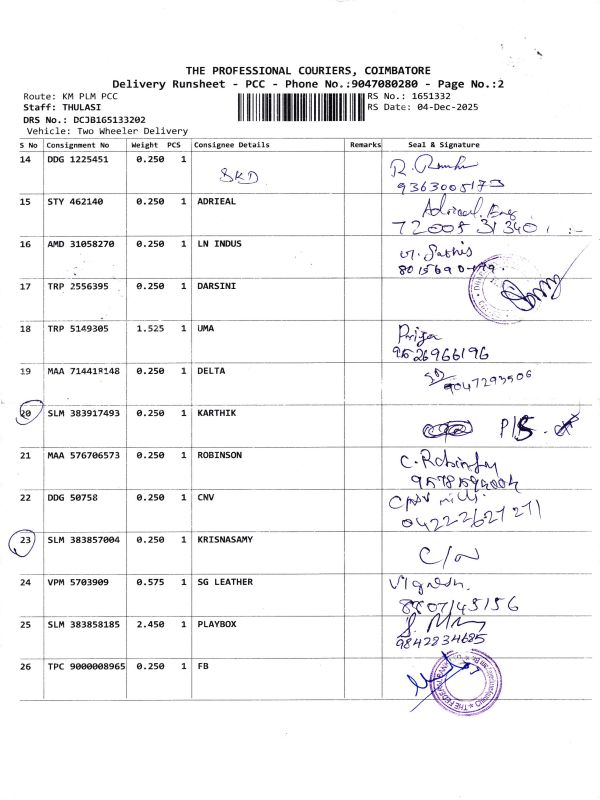 THE PROFESSIONAL COURIERS, COIMBATORE
Delivery Runsheet - PCC - Phone No.:9047080280 - Page No.:2
Route: KM PLM PCC
RS No.: 1651332
Staff: THULASI
RS Date: 04-Dec-2025
DRS No.: DCJB165133202
Vehicle: Two Wheeler Delivery
S No Consignment No Weight PCS Consignee Details Remarks Seal & Signature
14 DDG 1225451 0.250 1 SKD
9363005173
15 STY 462140 0.250 1 ADRIEAL
7200531340
16 AMD 31058270 0.250 1 LN INDUS
17 TRP 2556395 0.250 1 DARSINI
18 TRP 5149305 1.525 1 UMA Priya
9526966196
19 MAA 714418148 0.250 1 DELTA
9047293506
20 SLM 383917493 0.250 1 KARTHIK
21 MAA 576706573 0.250 1 ROBINSON
22 DDG 50758 0.250 1 CNV
04222627271
23 SLM 383857004 0.250 1 KRISNASAMY
24 VPM 5703909 0.575 1 SG LEATHER Vignesh.
8807145156
25 SLM 383858185 2.450 1 PLAYBOX
9842834685
26 TPC 9000008965 0.250 1 FB